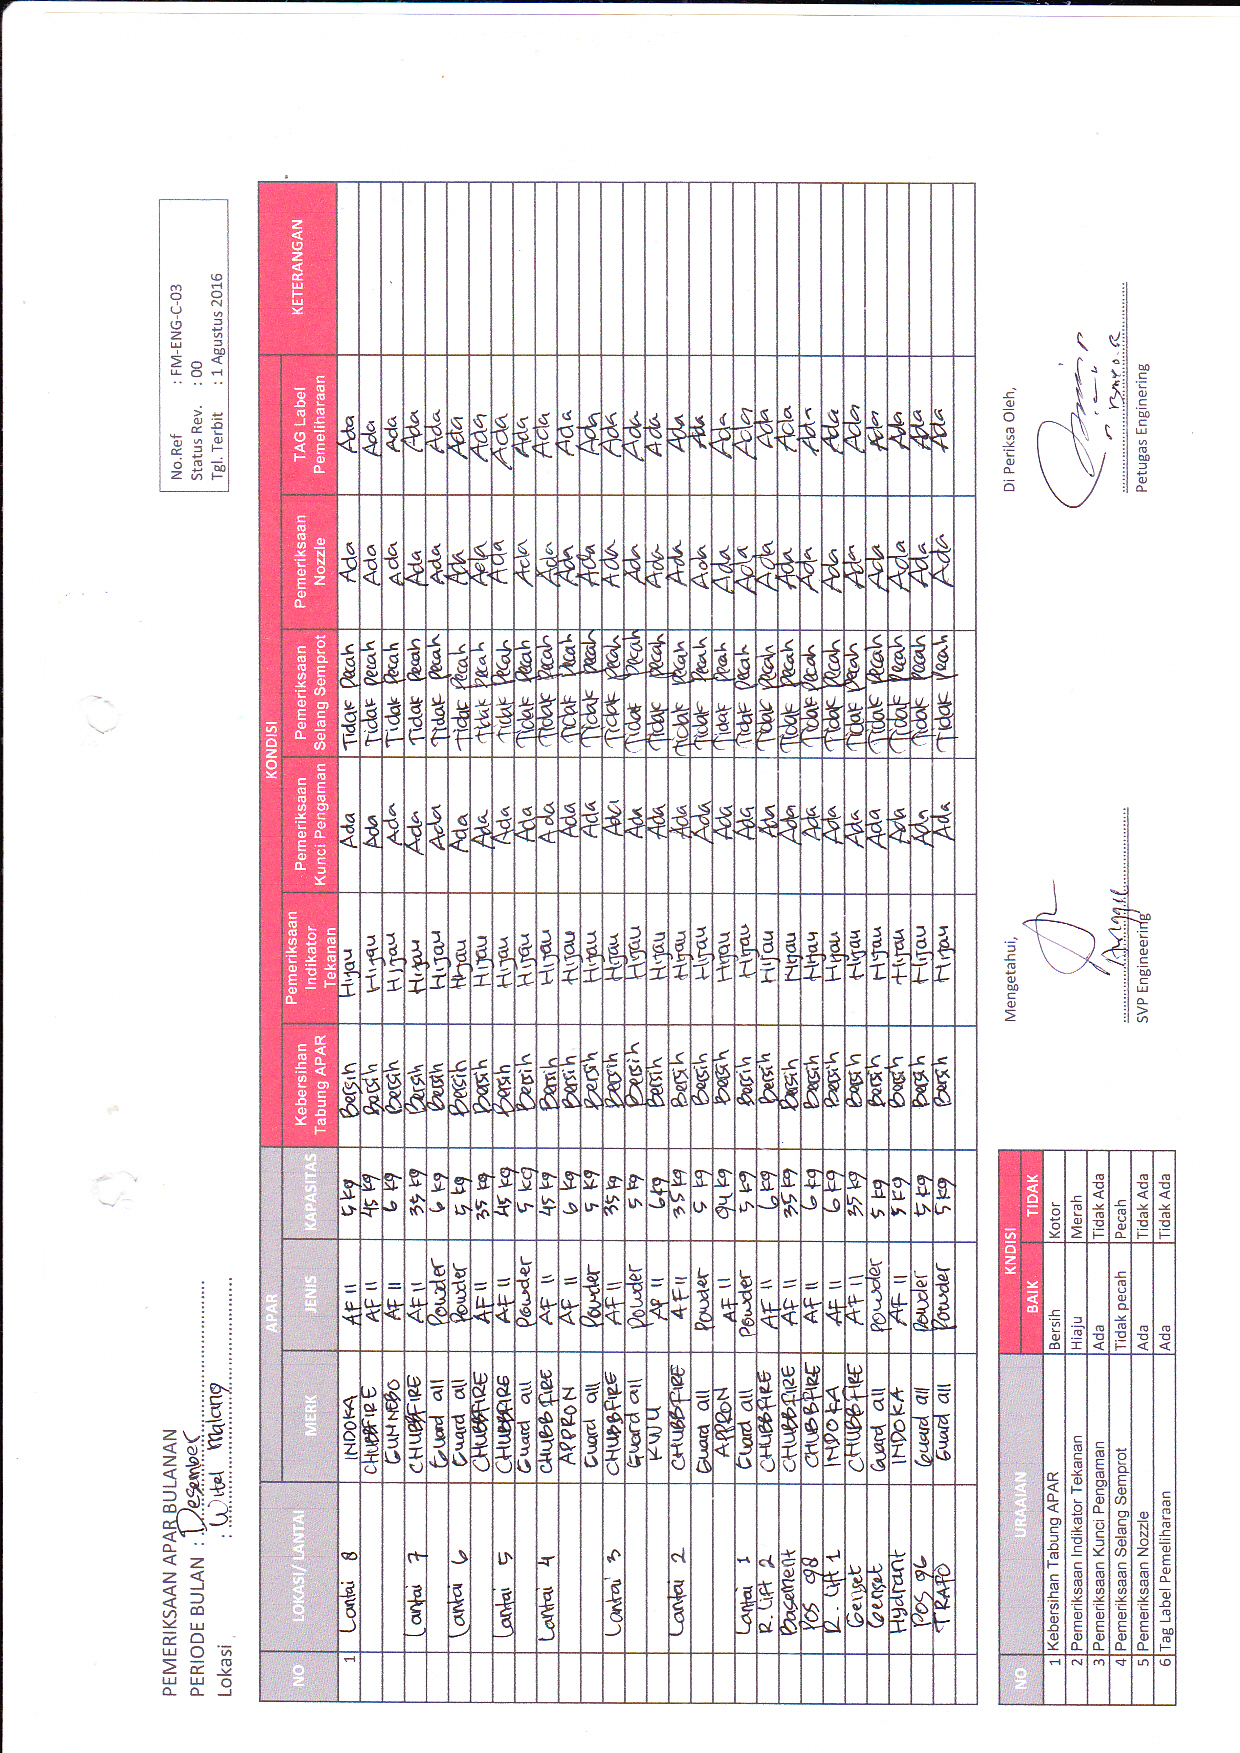 PEMERIKSAAN APAR BULANAN
PERIODE BULAN : Desember
Lokasi : Witel Malang
No.Ref : FM-ENG-C-03
Status Rev. : 00
Tgl. Terbit : 1 Agustus 2016
NO LOKASI/ LANTAI APAR KONDISI KETERANGAN
MERK JENIS KAPASITAS Kebersihan Tabung APAR Pemeriksaan Indikator Tekanan Pemeriksaan Kunci Pengaman Pemeriksaan Selang Semprot Pemeriksaan Nozzle TAG Label Pemeliharaan
1 Lantai 8 INDOKA AF II 5 kg Bersih Hijau Ada Tidak Pecah Ada Ada
CHUBBFIRE AF II 45 kg Bersih Hijau Ada Tidak Pecah Ada Ada
GUNNEBO AF II 6 kg Bersih Hijau Ada Tidak Pecah Ada Ada
Lantai 7 CHUBBFIRE AF II 35 kg Bersih Hijau Ada Tidak Pecah Ada Ada
Guard all Powder 6 kg Bersih Hijau Ada Tidak Pecah Ada Ada
Lantai 6 Guard all Powder 5 kg Bersih Hijau Ada Tidak Pecah Ada Ada
CHUBBFIRE AF II 35 kg Bersih Hijau Ada Tidak Pecah Ada Ada
Lantai 5 CHUBBFIRE AF II 45 kg Bersih Hijau Ada Tidak Pecah Ada Ada
Guard all Powder 5 kg Bersih Hijau Ada Tidak Pecah Ada Ada
Lantai 4 CHUBB FIRE AF II 45 kg Bersih Hijau Ada Tidak Pecah Ada Ada
APPRON AF II 6 kg Bersih Hijau Ada Tidak Pecah Ada Ada
Guard all Powder 5 kg Bersih Hijau Ada Tidak Pecah Ada Ada
Lantai 3 CHUBBFIRE AF II 35 kg Bersih Hijau Ada Tidak Pecah Ada Ada
Guard all Powder 5 kg Bersih Hijau Ada Tidak Pecah Ada Ada
KWU AP II 6 kg Bersih Hijau Ada Tidak Pecah Ada Ada
Lantai 2 CHUBBFIRE AF II 35 kg Bersih Hijau Ada Tidak Pecah Ada Ada
Guard all Powder 5 kg Bersih Hijau Ada Tidak Pecah Ada Ada
APPRON AF II 94 kg Bersih Hijau Ada Tidak Pecah Ada Ada
Lantai 1 Guard all Powder 5 kg Bersih Hijau Ada Tidak Pecah Ada Ada
R. Lift 2 CHUBBFIRE AF II 6 kg Bersih Hijau Ada Tidak Pecah Ada Ada
Basement CHUBBFIRE AF II 35 kg Bersih Hijau Ada Tidak Pecah Ada Ada
POS 98 CHUBBFIRE AF II 6 kg Bersih Hijau Ada Tidak Pecah Ada Ada
R. Lift 1 INDOKA AF II 6 kg Bersih Hijau Ada Tidak Pecah Ada Ada
Genset CHUBBFIRE AF II 35 kg Bersih Hijau Ada Tidak Pecah Ada Ada
Genset Guard all Powder 5 kg Bersih Hijau Ada Tidak Pecah Ada Ada
Hydrant INDOKA AF II 5 kg Bersih Hijau Ada Tidak Pecah Ada Ada
POS 96 Guard all Powder 5 kg Bersih Hijau Ada Tidak Pecah Ada Ada
TRAFO Guard all Powder 5 kg Bersih Hijau Ada Tidak Pecah Ada Ada
NO URAAIAN KNDISI
BAIK TIDAK
1 Kebersihan Tabung APAR Bersih Kotor
2 Pemeriksaan Indikator Tekanan Hiaju Merah
3 Pemeriksaan Kunci Pengaman Ada Tidak Ada
4 Pemeriksaan Selang Semprot Tidak pecah Pecah
5 Pemeriksaan Nozzle Ada Tidak Ada
6 Tag Label Pemeliharaan Ada Tidak Ada
Mengetahui,
SVP Engineering
Di Periksa Oleh,
Petugas Enginering